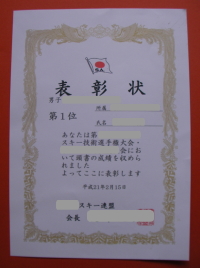 SAJ
表彰状
男子
所属
第1位
氏名
あなたは第
スキー技術選手権大会・
会にお
いて頭書の成績を収めら
れました
よってここに表彰します
平成21年2月15日
スキー連盟
会長